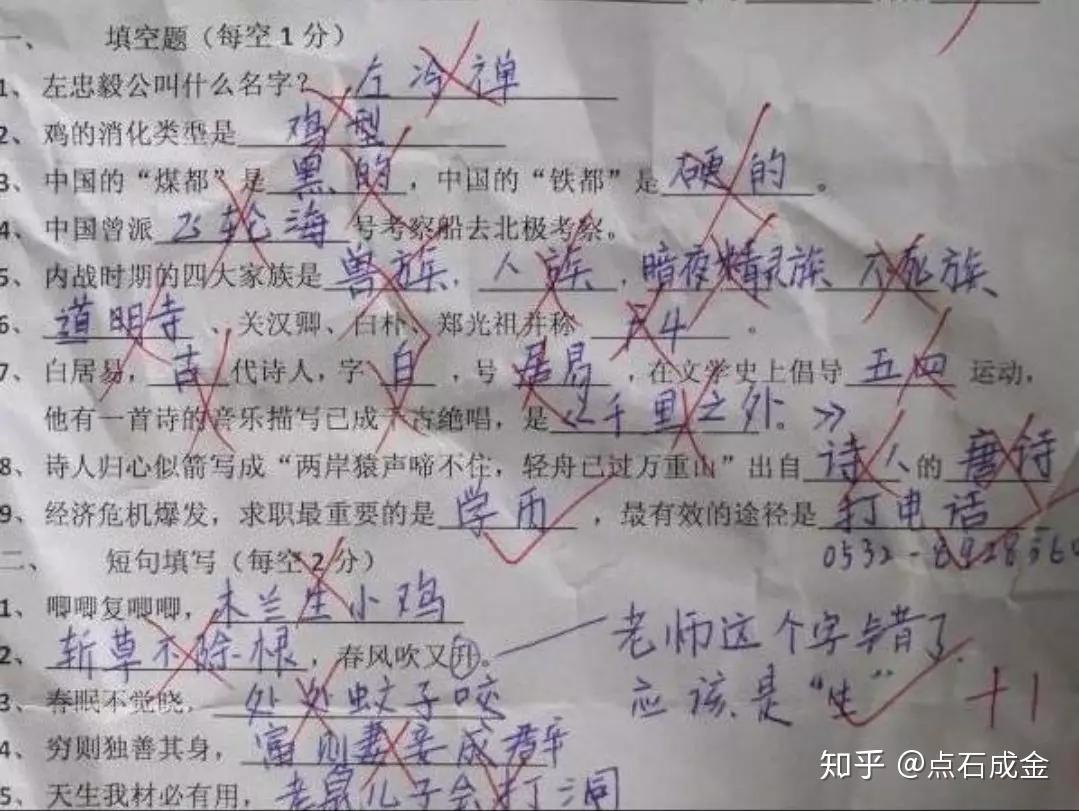 一、 填空题（每空1分）
1、左忠毅公叫什么名字？ 左冷禅
2、鸡的消化类型是 鸡型
3、中国的“煤都”是 黑的 ，中国的“铁都”是 硬的 。
4、中国曾派 飞轮海 号考察船去北极考察。
5、内战时期的四大家族是 兽族、人族、暗夜精灵族、不死族、
6、道明寺 、关汉卿、白朴、郑光祖并称 F4 。
7、白居易，古代诗人，字 白 ，号 居易 ，在文学史上倡导 五四 运动，
他有一首诗的音乐描写已成千古绝唱，是《千里之外。》
8、诗人归心似箭写成“两岸猿声啼不住，轻舟已过万重山”出自 诗人 的 唐诗
9、经济危机爆发，求职最重要的是 学历 ，最有效的途径是 打电话
0532-
二、 短句填写（每空2分）
1、唧唧复唧唧，木兰生小鸡
2、斩草不除根，春风吹又升。 老师这个字写错了
3、春眠不觉晓，处处蚊子咬 应该是“生” +1
4、穷则独善其身，富则妻妾成群
5、天生我材必有用，老鼠儿子会打洞
知乎 @点石成金